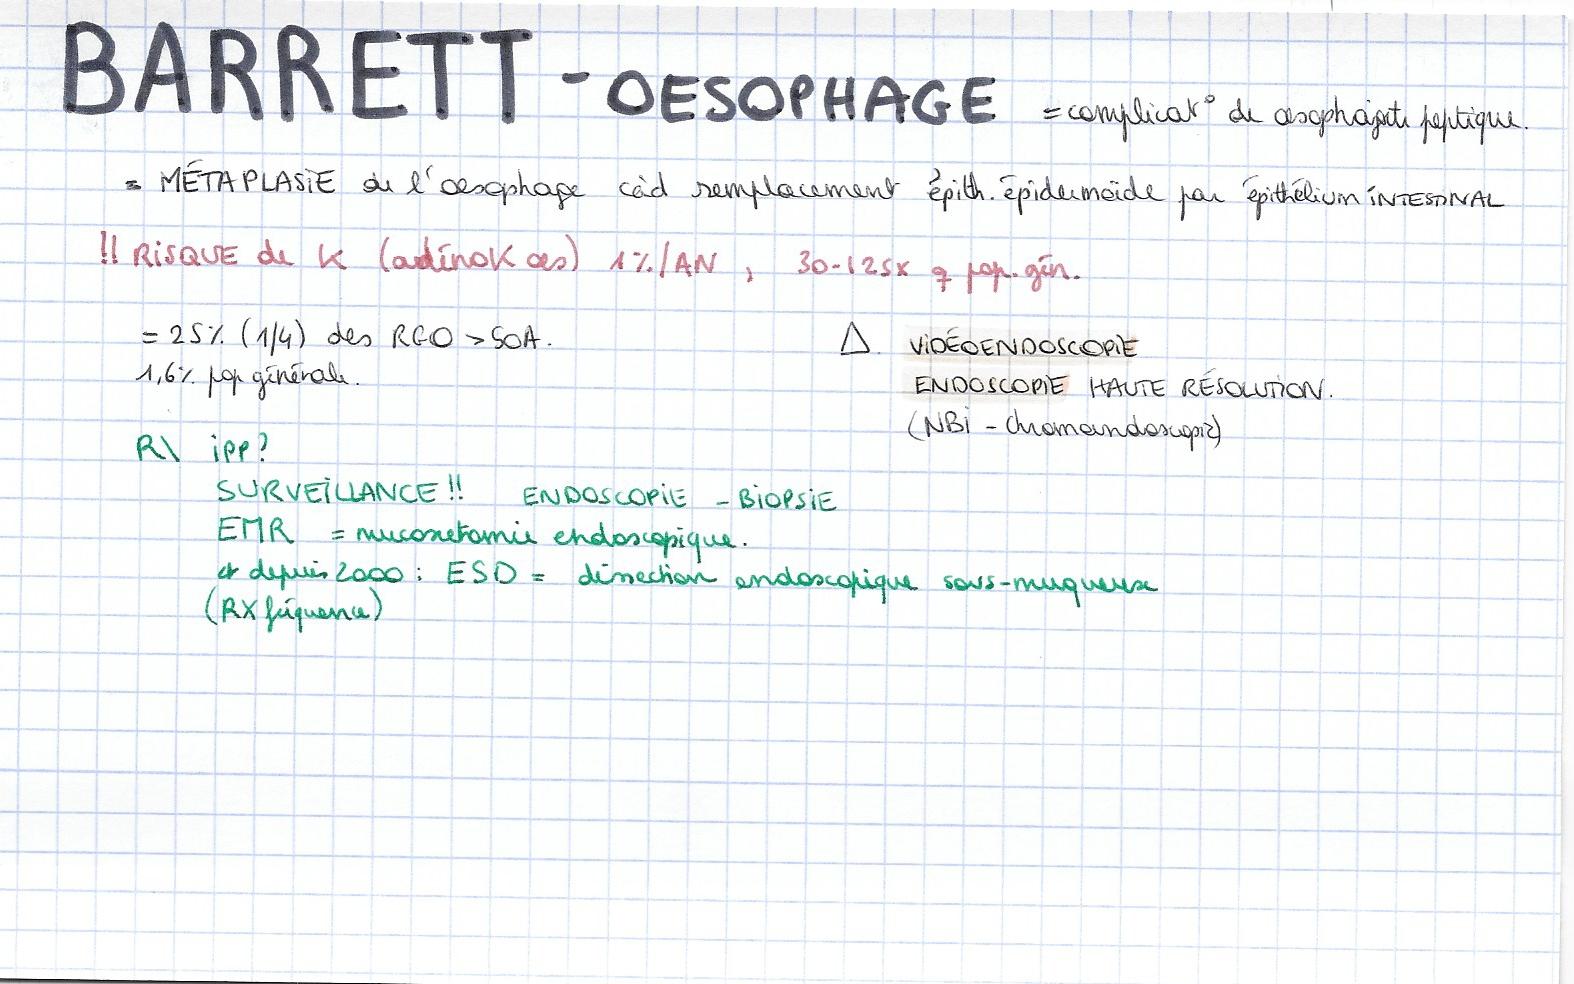 BARRETT - OESOPHAGE = complicat° de oesophagite peptique.
= MÉTAPLASIE de l'oesophage càd remplacement épith. épidermoïde par épithélium INTESTINAL
!! RISQUE de K (adénoK oes) 1%/AN, 30-125x q pop. gén.
= 25% (1/4) des RGO > 50A.
1,6% pop générale.
Δ. VIDÉOENDOSCOPIE
ENDOSCOPIE HAUTE RÉSOLUTION.
(NBI - chromoendoscopie)
R\ ipp?
SURVEILLANCE!! ENDOSCOPIE - BIOPSIE
EMR = mucosectomie endoscopique.
et depuis 2000 : ESD = dissection endoscopique sous-muqueuse
(RX fréquence)